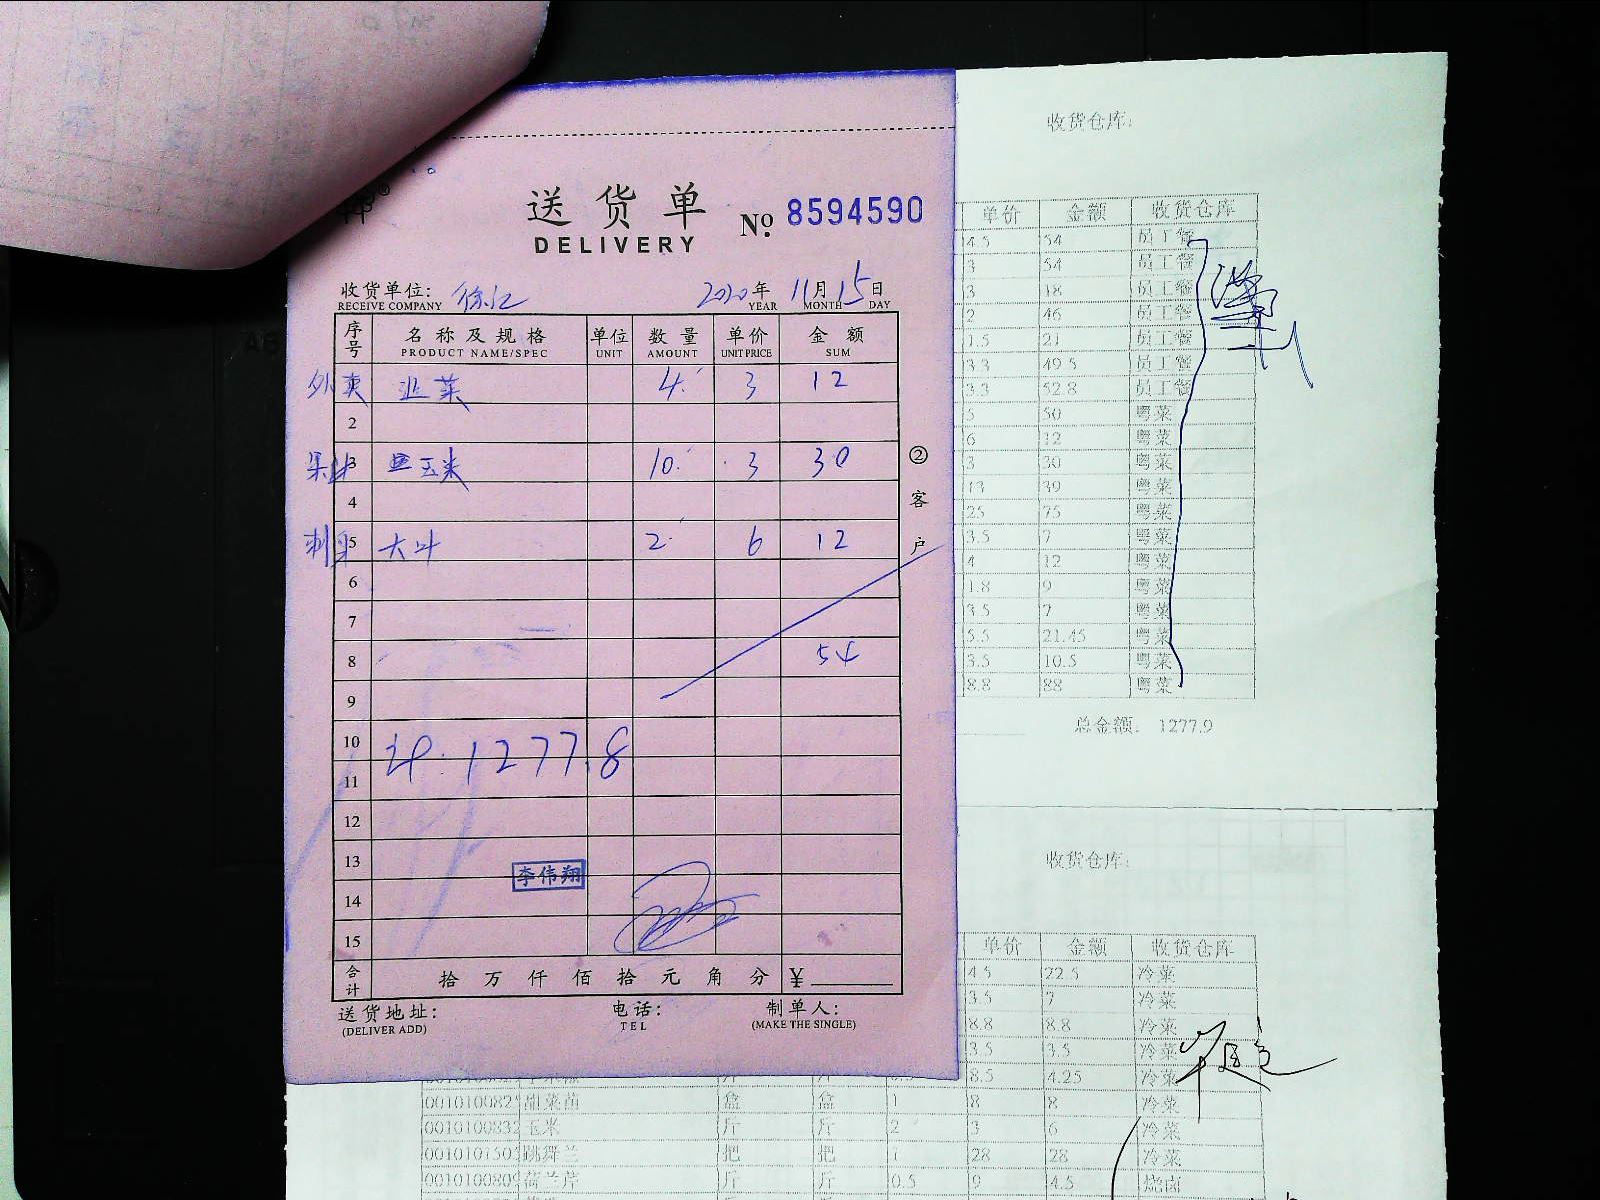 送货单
DELIVERY
No. 8594590
收货单位:
RECEIVE COMPANY
2020年 11月 15日
YEAR MONTH DAY
序号 名称及规格 单位 数量 单价 金额
PRODUCT NAME/SPEC UNIT AMOUNT UNIT PRICE SUM
外卖 韭菜 4 3 12
2
3 玉米 10 3 30
4
刺身 5 大叶 2 6 12
6
7
8 54
9
10
11
计: 1277.8
12
13
李伟翔
14
15
合计 拾 万 仟 佰 拾 元 角 分 ¥
送货地址: 电话: 制单人:
(DELIVER ADD) TEL (MAKE THE SINGLE)
②客户
收货仓库:
单价 金额 收货仓库
4.5 54 员工餐
3 54 员工餐
3 18 员工餐
2 46 员工餐
1.5 21 员工餐
3.3 49.5 员工餐
3.3 52.8 员工餐
5 50 粤菜
6 12 粤菜
3 30 粤菜
13 39 粤菜
25 75 粤菜
3.5 7 粤菜
4 12 粤菜
1.8 9 粤菜
3.5 7 粤菜
5.5 21.45 粤菜
3.5 10.5 粤菜
8.8 88 粤菜
总金额: 1277.9
收货仓库:
单价 金额 收货仓库
4.5 22.5 冷菜
3.5 7 冷菜
8.8 8.8 冷菜
3.5 3.5 冷菜
8.5 4.25 冷菜
001010082 甜菜苗 盒 盒 1 8 8 冷菜
0010100832 玉米 斤 斤 2 3 6 冷菜
001010150 跳舞兰 把 把 1 28 28 冷菜
001010080 荷兰芹 斤 斤 0.5 9 4.5 烧卤